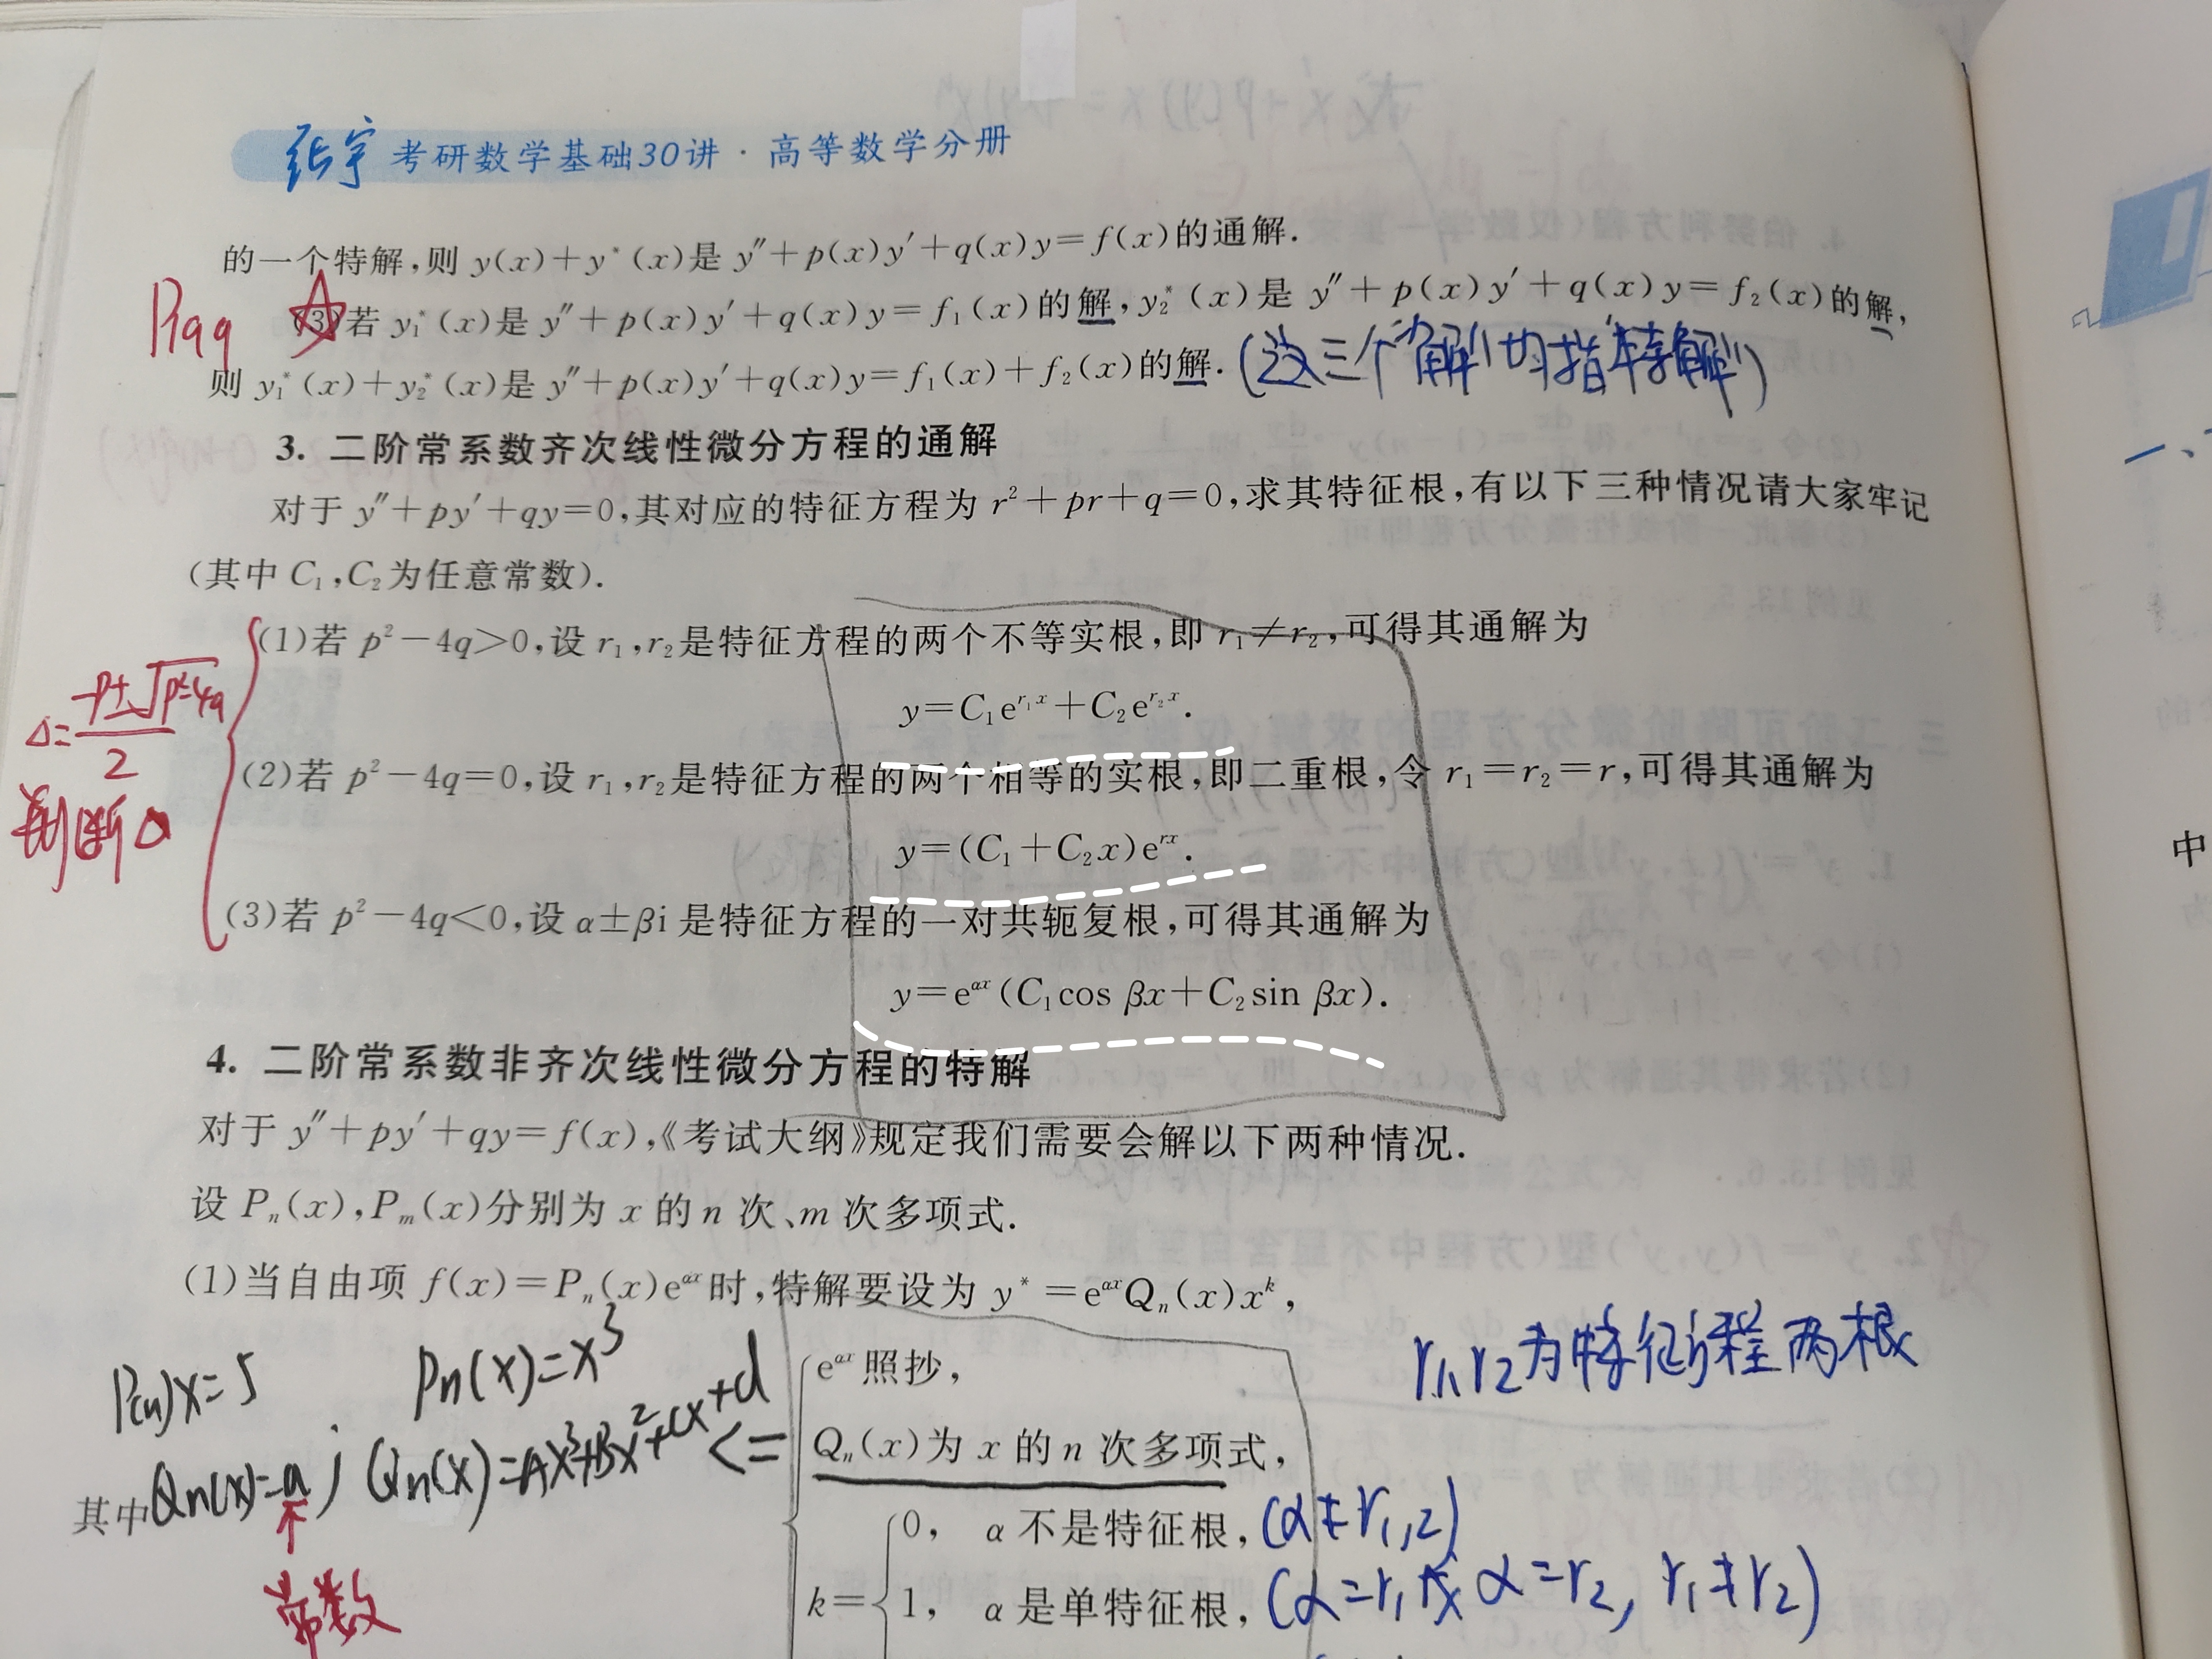 张宇 考研数学基础30讲·高等数学分册
的一个特解,则 y(x)+y*(x)是 y″+p(x)y′+q(x)y=f(x)的通解.
P199 ☆ (3)若 y₁*(x)是 y″+p(x)y′+q(x)y=f₁(x)的解,y₂*(x)是 y″+p(x)y′+q(x)y=f₂(x)的解,
则 y₁*(x)+y₂*(x)是 y″+p(x)y′+q(x)y=f₁(x)+f₂(x)的解. (这三个"解"均指"特解")
3. 二阶常系数齐次线性微分方程的通解
对于 y″+py′+qy=0,其对应的特征方程为 r²+pr+q=0,求其特征根,有以下三种情况请大家牢记
(其中 C₁,C₂为任意常数).
(1)若 p²-4q>0,设 r₁,r₂是特征方程的两个不等实根,即 r₁≠r₂,可得其通解为
y=C₁e^{r₁x}+C₂e^{r₂x}.
Δ=(-P±√(P²-4q))/2
判断Δ
(2)若 p²-4q=0,设 r₁,r₂是特征方程的两个相等的实根,即二重根,令 r₁=r₂=r,可得其通解为
y=(C₁+C₂x)e^{rx}.
(3)若 p²-4q<0,设 α±βi 是特征方程的一对共轭复根,可得其通解为
y=e^{αx}(C₁cos βx+C₂sin βx).
4. 二阶常系数非齐次线性微分方程的特解
对于 y″+py′+qy=f(x),《考试大纲》规定我们需要会解以下两种情况.
设 Pₙ(x),Pₘ(x)分别为 x 的 n 次、m 次多项式.
(1)当自由项 f(x)=Pₙ(x)e^{αx}时,特解要设为 y*=e^{αx}Qₙ(x)x^k,
P(n)x=5 Pn(x)=x³
e^{αx}照抄,
r₁,r₂为特征方程两根
其中 Qn(x)=a ; Qn(x)=Ax³+Bx²+Cx+d <=
Qₙ(x)为 x 的 n 次多项式,
常数
k=
0, α 不是特征根, (α≠r₁,₂)
1, α 是单特征根, (α=r₁或α=r₂, r₁≠r₂)
一、
中